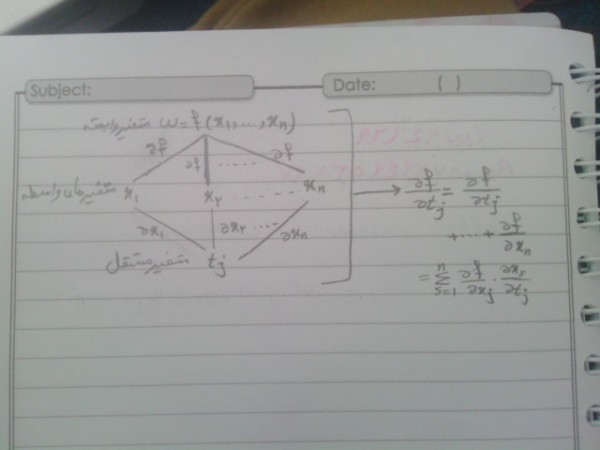 Subject:
Date: ( )
متغیر وابسته w = f(x₁, ..., xₙ)
∂f ∂f ..... ∂f
متغیرهای واسطه x₁ x₂ ------ xₙ
∂x₁ ∂x₂ ---- ∂xₙ
متغیر مستقل tj
→ ∂f/∂tj = ∂f/∂tj
+ ... + ∂f/∂xₙ
= Σⁿₛ₌₁ ∂f/∂xj · ∂xₛ/∂tj